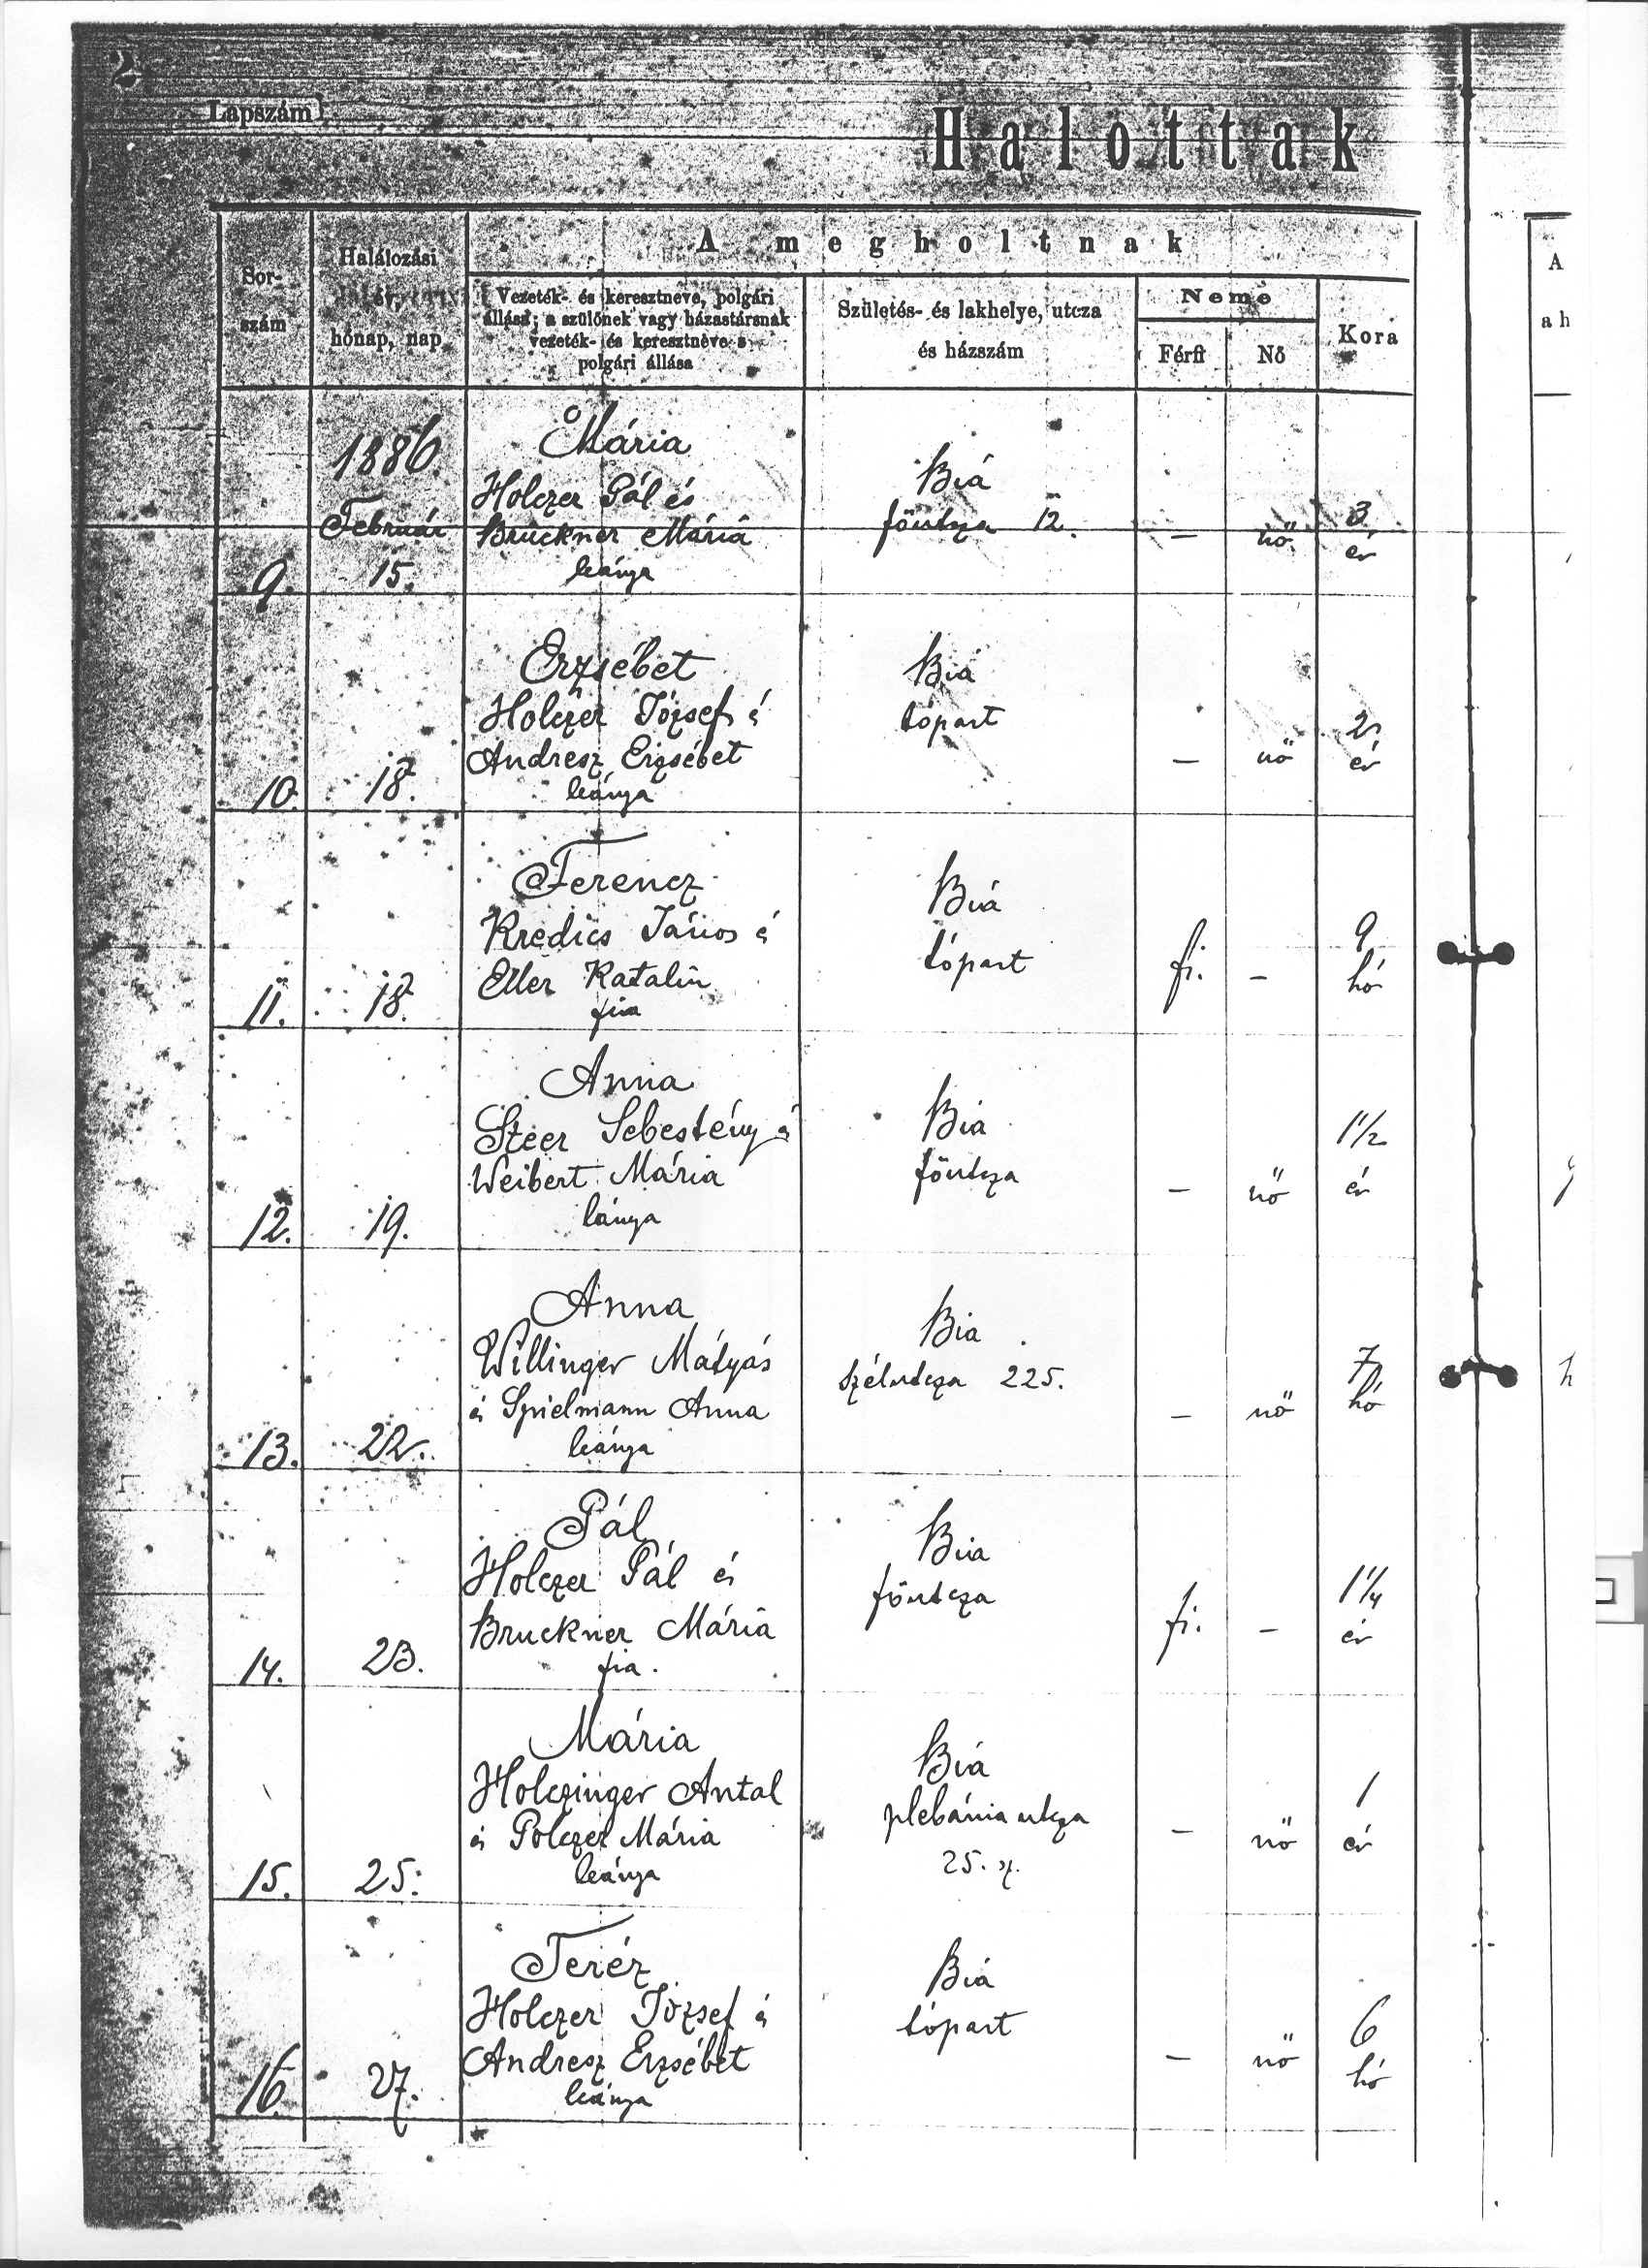 2
Lapszám
Halottak
Sor-
szám
Halálozási
hónap, nap
A megholtnak
Vezeték- és keresztneve, polgári
állása; a szülőnek vagy házastársnak
vezeték- és keresztneve s
polgári állása
Születés- és lakhelye, utcza
és házszám
Neme
Férfi
Nő
Kora
A
a h
1886
Február
9.
15.
Mária
Holczer Pál és
Bruckner Mária
leánya
Biá
főutcza 12.
–
nő
3
év
10.
18.
Erzsébet
Holczer József és
Andresz Erzsébet
leánya
Biá
tópart
–
nő
2
év
11.
18.
Ferencz
Kredics János és
Eller Katalin
fia
Biá
tópart
fi.
–
9
hó
12.
19.
Anna
Steer Sebestény és
Weibert Mária
lánya
Biá
főutcza
–
nő
1 1/2
év
13.
22.
Anna
Willinger Mátyás
és Spielmann Anna
leánya
Bia
szélutcza 225.
–
nő
7
hó
14.
23.
Pál
Holczer Pál és
Bruckner Mária
fia.
Bia
főutcza
fi.
–
1 1/4
év
15.
25.
Mária
Holczinger Antal
és Polczer Mária
leánya
Biá
plebánia utcza
25. sz.
–
nő
1
év
16.
27.
Teréz
Holczer József és
Andresz Erzsébet
leánya
Biá
tópart
–
nő
6
hó